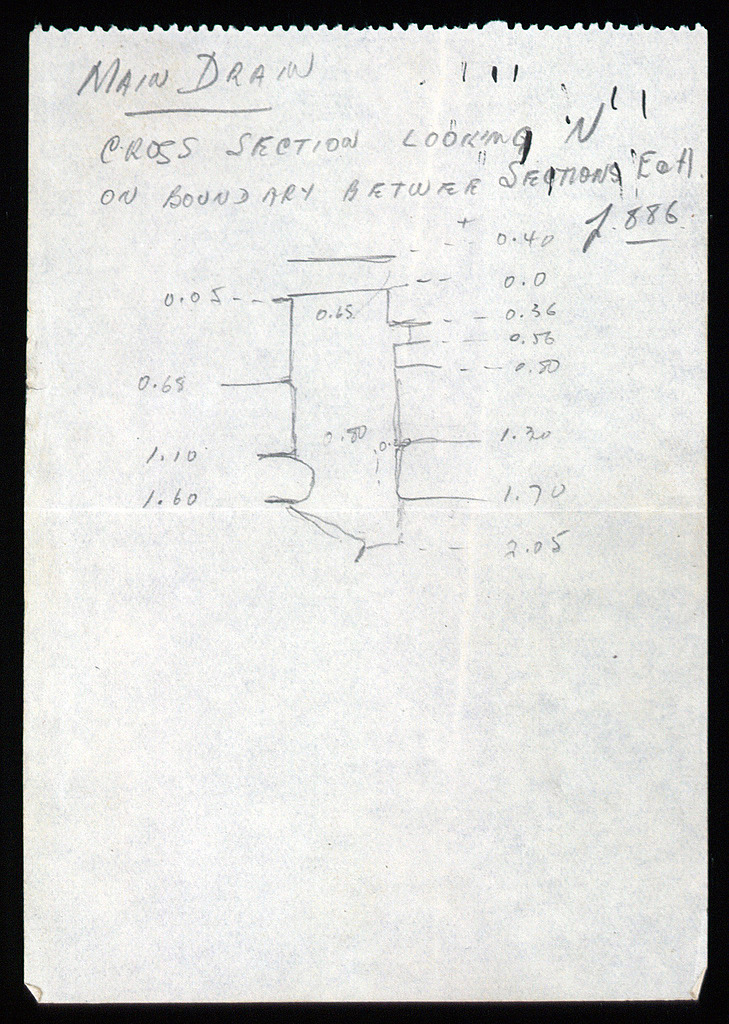 MAIN DRAIN
CROSS SECTION LOOKING 'N'
ON BOUNDARY BETWEE SECTIONS E
886
+ 0.40
0.0
0.05
0.65
0.36
0.56
0.80
0.68
0.80
1.30
1.10
1.60
1.70
2.05